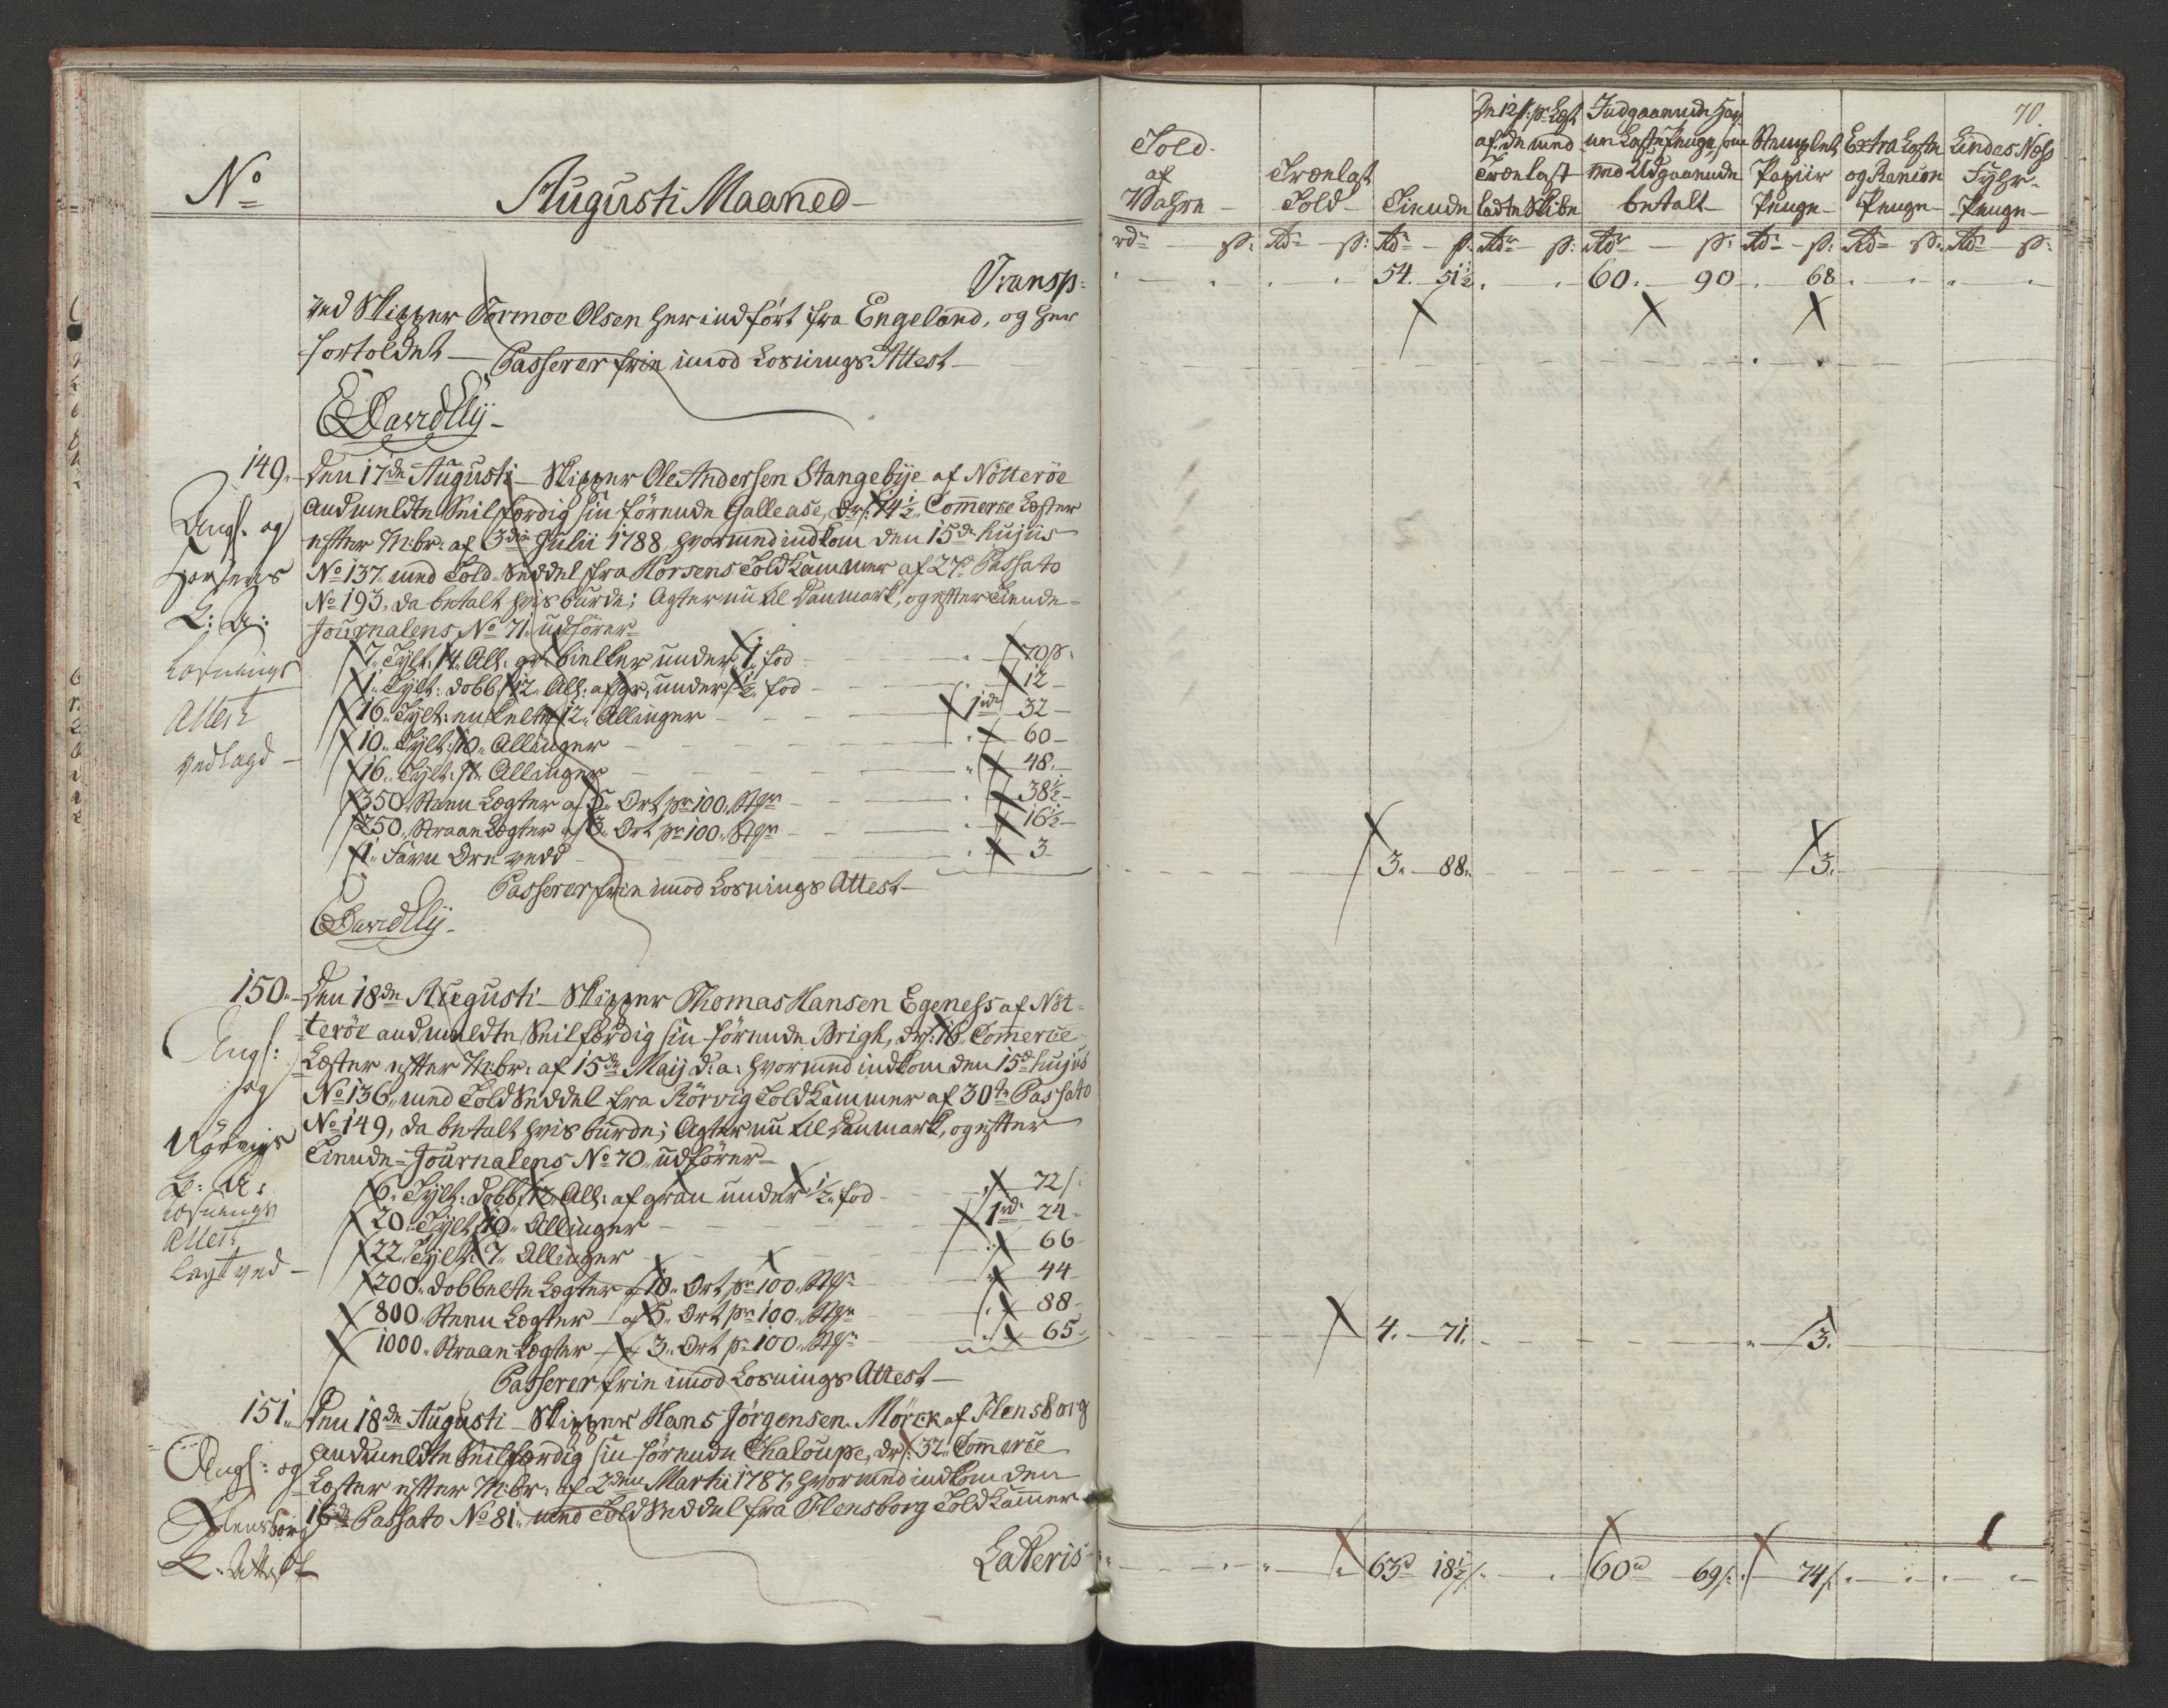 No
Augusti Maaned
Transp:
ved Skipper Tormoe Olsen her indført fra Engeland, og her
fortoldet — Passerer frie imod Losnings Attest —
EDavidElij
149. Den 17de Augusti — Skipper Ole Andersen Stangebÿe af Nötteröe
andmeldte Seilfærdig sin förende Gallease, dr: 14½ Commerce Læster
efter M:br: af 3die Julii 1788, hvormed indkom den 15de hujus
No 137. med Told-Seddel fra Horsens Told Kammer af 27de Passato
No 193, da betalt hvis burde; Agter nu til Danmark, og efter Tiende-
Journalens No 71. udförer
7. Tÿlt. 14. All: gr: bielker under 1. fod — 70 s:
1. Tÿlt: dobb: 12. All: af gr: under ½ fod — 12
16. Tÿlt: enkelte 12. Allinger — 1 rd 32
10. Tÿlt: 10. Allinger — 60
16. Tÿlt: 7. Allinger — 48.
350. Steen Legter af 5. Ort pr 100. Stkr — 38½
250. Straae Legter af 3. Ort pr 100. Stkr — 16½
1. Favn Ore vedd — 3
Passerer frie imod Losnings Attest —
EDavidElij
Angf: og
Horsens
L: A:
Losnings
Attest
vedlagd
150. Den 18de Augusti — Skipper Thomas Hansen Egeness af Nöt-
teröe andmeldte Seilfærdig sin förende Brigh, dr: 16. Commerce
Læster efter M:br: af 15de Maij d: a: hvormed indkom den 15de hujus
No 136. med Told Seddel fra Rörvig Told Kammer af 30te Passato
No 149, da betalt hvis burde; Agter nu til Danmark, og efter
Tiende-Journalens No 70. udförer
6. Tÿlt: dobb: 12. All: af gran under ½ fod — 72 s:
20. Tÿlt: 10. Allinger — 1 rd 24
22. Tÿlt: 7. Allinger — 66
200. dobbelte Legter af 10. Ort pr 100. Stkr — 44
800. Steen Legter af 5. Ort pr 100. Stkr — 88
1000. Straae Legter af 3. Ort pr 100. Stkr — 65
Passerer frie imod Losnings Attest —
Angf:
og
Rörvigs
L: A:
Losnings
Attest
lagt ved
151. Den 18de Augusti — Skipper Hans Jörgensen Mörck af Flensborg
andmeldte Seilfærdig sin förende Chaloupe, dr: 32. Commerce
Læster efter M:br: af 2den Martii 1787, hvormed indkom den
16de Passato No 81. med Told Seddel fra Flensborg Told Kammer
Angf: og
Flensborg
L. Attest
Lateris
70.
Told af Wahre
Trælast Told
Tiende
De 12 s: pr Læst af de med Trælast ladte Skibe
Indgaaende Havne Læste Penge, som med Udgaaende betalt
Stemplet Papiir Penge
Extra Læste og Ranzion Penge
Lindes Næss Fÿhr Penge
rdr s: rdr s: rdr s: rdr s: rdr s: rdr s: rdr s: rdr s:
54. 51½ 60. 90 68
3. 88. 3.
4. 71. 3.
63 18½ 60 69 74